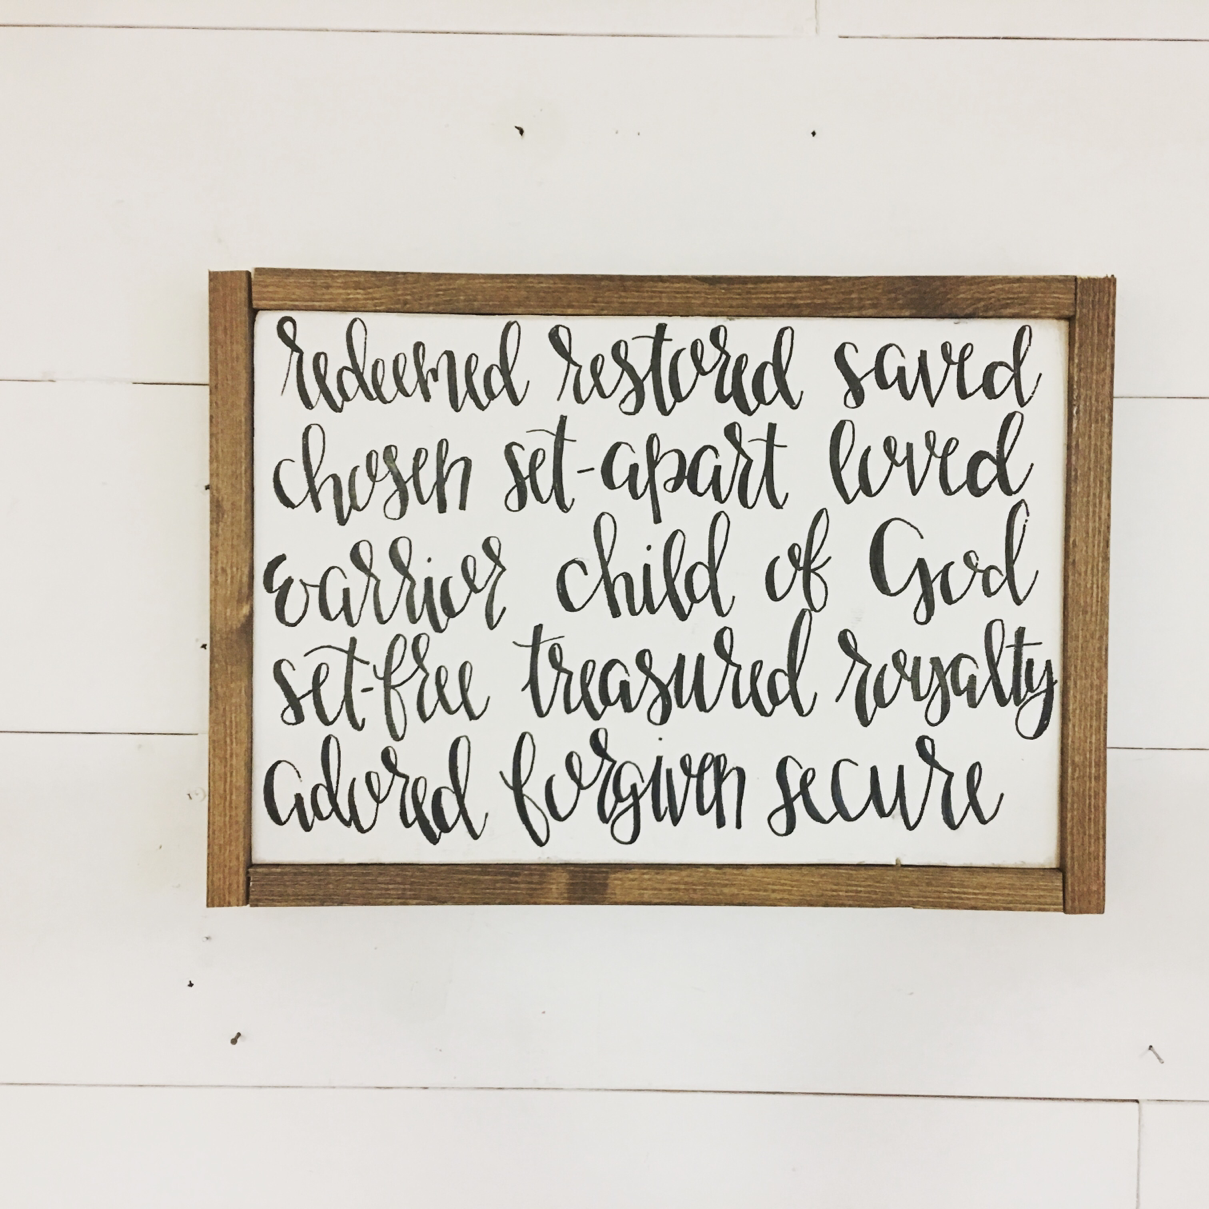 redeemed restored saved
chosen set-apart loved
warrior child of God
set-free treasured royalty
adored forgiven secure